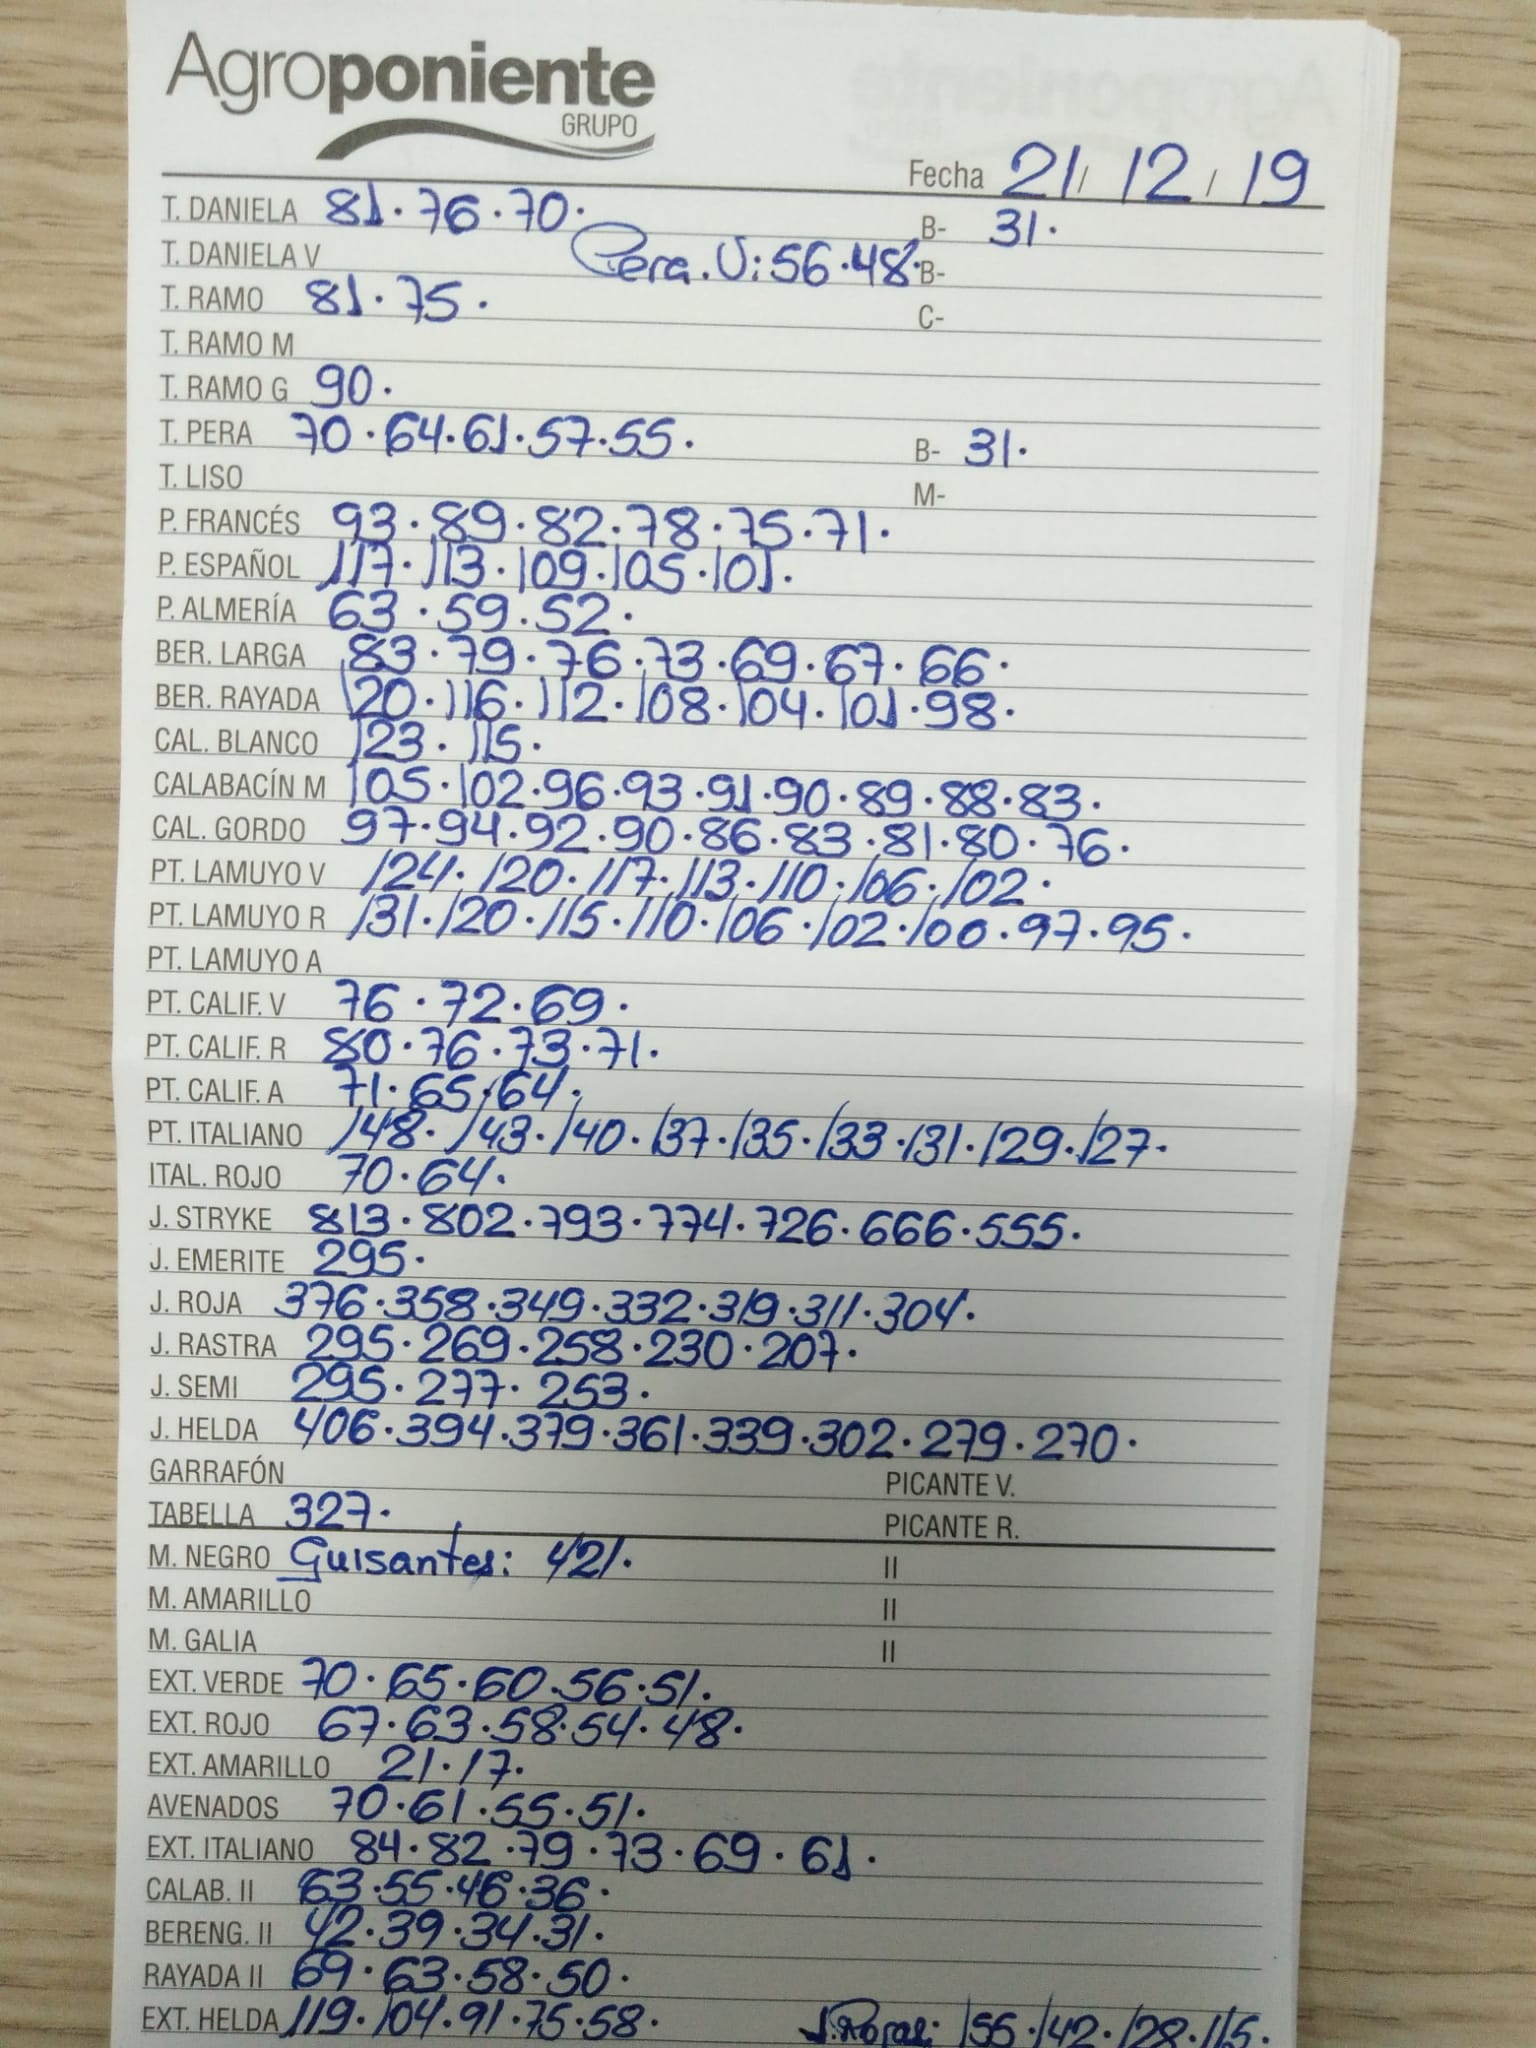 Agroponiente
GRUPO
Fecha 21/ 12 / 19
T. DANIELA 81.76.70. B- 31.
T. DANIELA V Pera.V: 56.48. B-
T. RAMO 81.75. C-
T. RAMO M
T. RAMO G 90.
T. PERA 70.64.61.57.55. B- 31.
T. LISO M-
P. FRANCÉS 93.89.82.78.75.71.
P. ESPAÑOL 117.113.109.105.101.
P. ALMERÍA 63.59.52.
BER. LARGA 83.79.76.73.69.67.66.
BER. RAYADA 120.116.112.108.104.101.98.
CAL. BLANCO 123.115.
CALABACÍN M 105.102.96.93.91.90.89.88.83.
CAL. GORDO 97.94.92.90.86.83.81.80.76.
PT. LAMUYO V 124.120.117.113.110.106.102.
PT. LAMUYO R 131.120.115.110.106.102.100.97.95.
PT. LAMUYO A
PT. CALIF. V 76.72.69.
PT. CALIF. R 80.76.73.71.
PT. CALIF. A 71.65.64.
PT. ITALIANO 148.143.140.137.135.133.131.129.127.
ITAL. ROJO 70.64.
J. STRYKE 813.802.793.774.726.666.555.
J. EMERITE 295.
J. ROJA 376.358.349.332.319.311.304.
J. RASTRA 295.269.258.230.207.
J. SEMI 295.277.253.
J. HELDA 406.394.379.361.339.302.279.270.
GARRAFÓN PICANTE V.
TABELLA 327. PICANTE R.
M. NEGRO Guisantes: 421. II
M. AMARILLO II
M. GALIA II
EXT. VERDE 70.65.60.56.51.
EXT. ROJO 67.63.58.54.48.
EXT. AMARILLO 21.17.
AVENADOS 70.61.55.51.
EXT. ITALIANO 84.82.79.73.69.61.
CALAB. II 63.55.46.36.
BERENG. II 42.39.34.31.
RAYADA II 69.63.58.50.
EXT. HELDA 119.104.91.75.58. J.Rojas: 155.142.128.115.